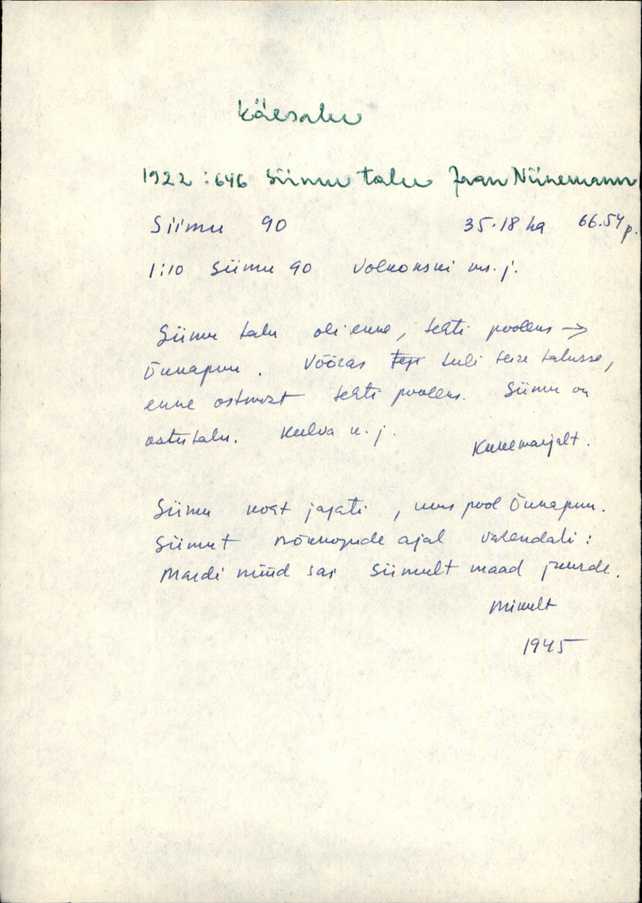 Käesalu
1922:646 Siimu talu Jaan Niinemann
Siimu 90 35.18 ha 66.54 p.
1:10 Siimu 90 Volkonski ms. j.
Siimu talu oli enne, tehti pooleks →
Õunapuu. Võõras tuli teise talusse,
enne ostmist tehti pooleks. Siimu on
ostutalu. Kulva n. j.
Kukemarjalt.
Siimu koht jagati, uus pool Õunapuu.
Siimut nõukogude ajal vähendati:
Mardi nüüd sai Siimult maad juurde.
1945